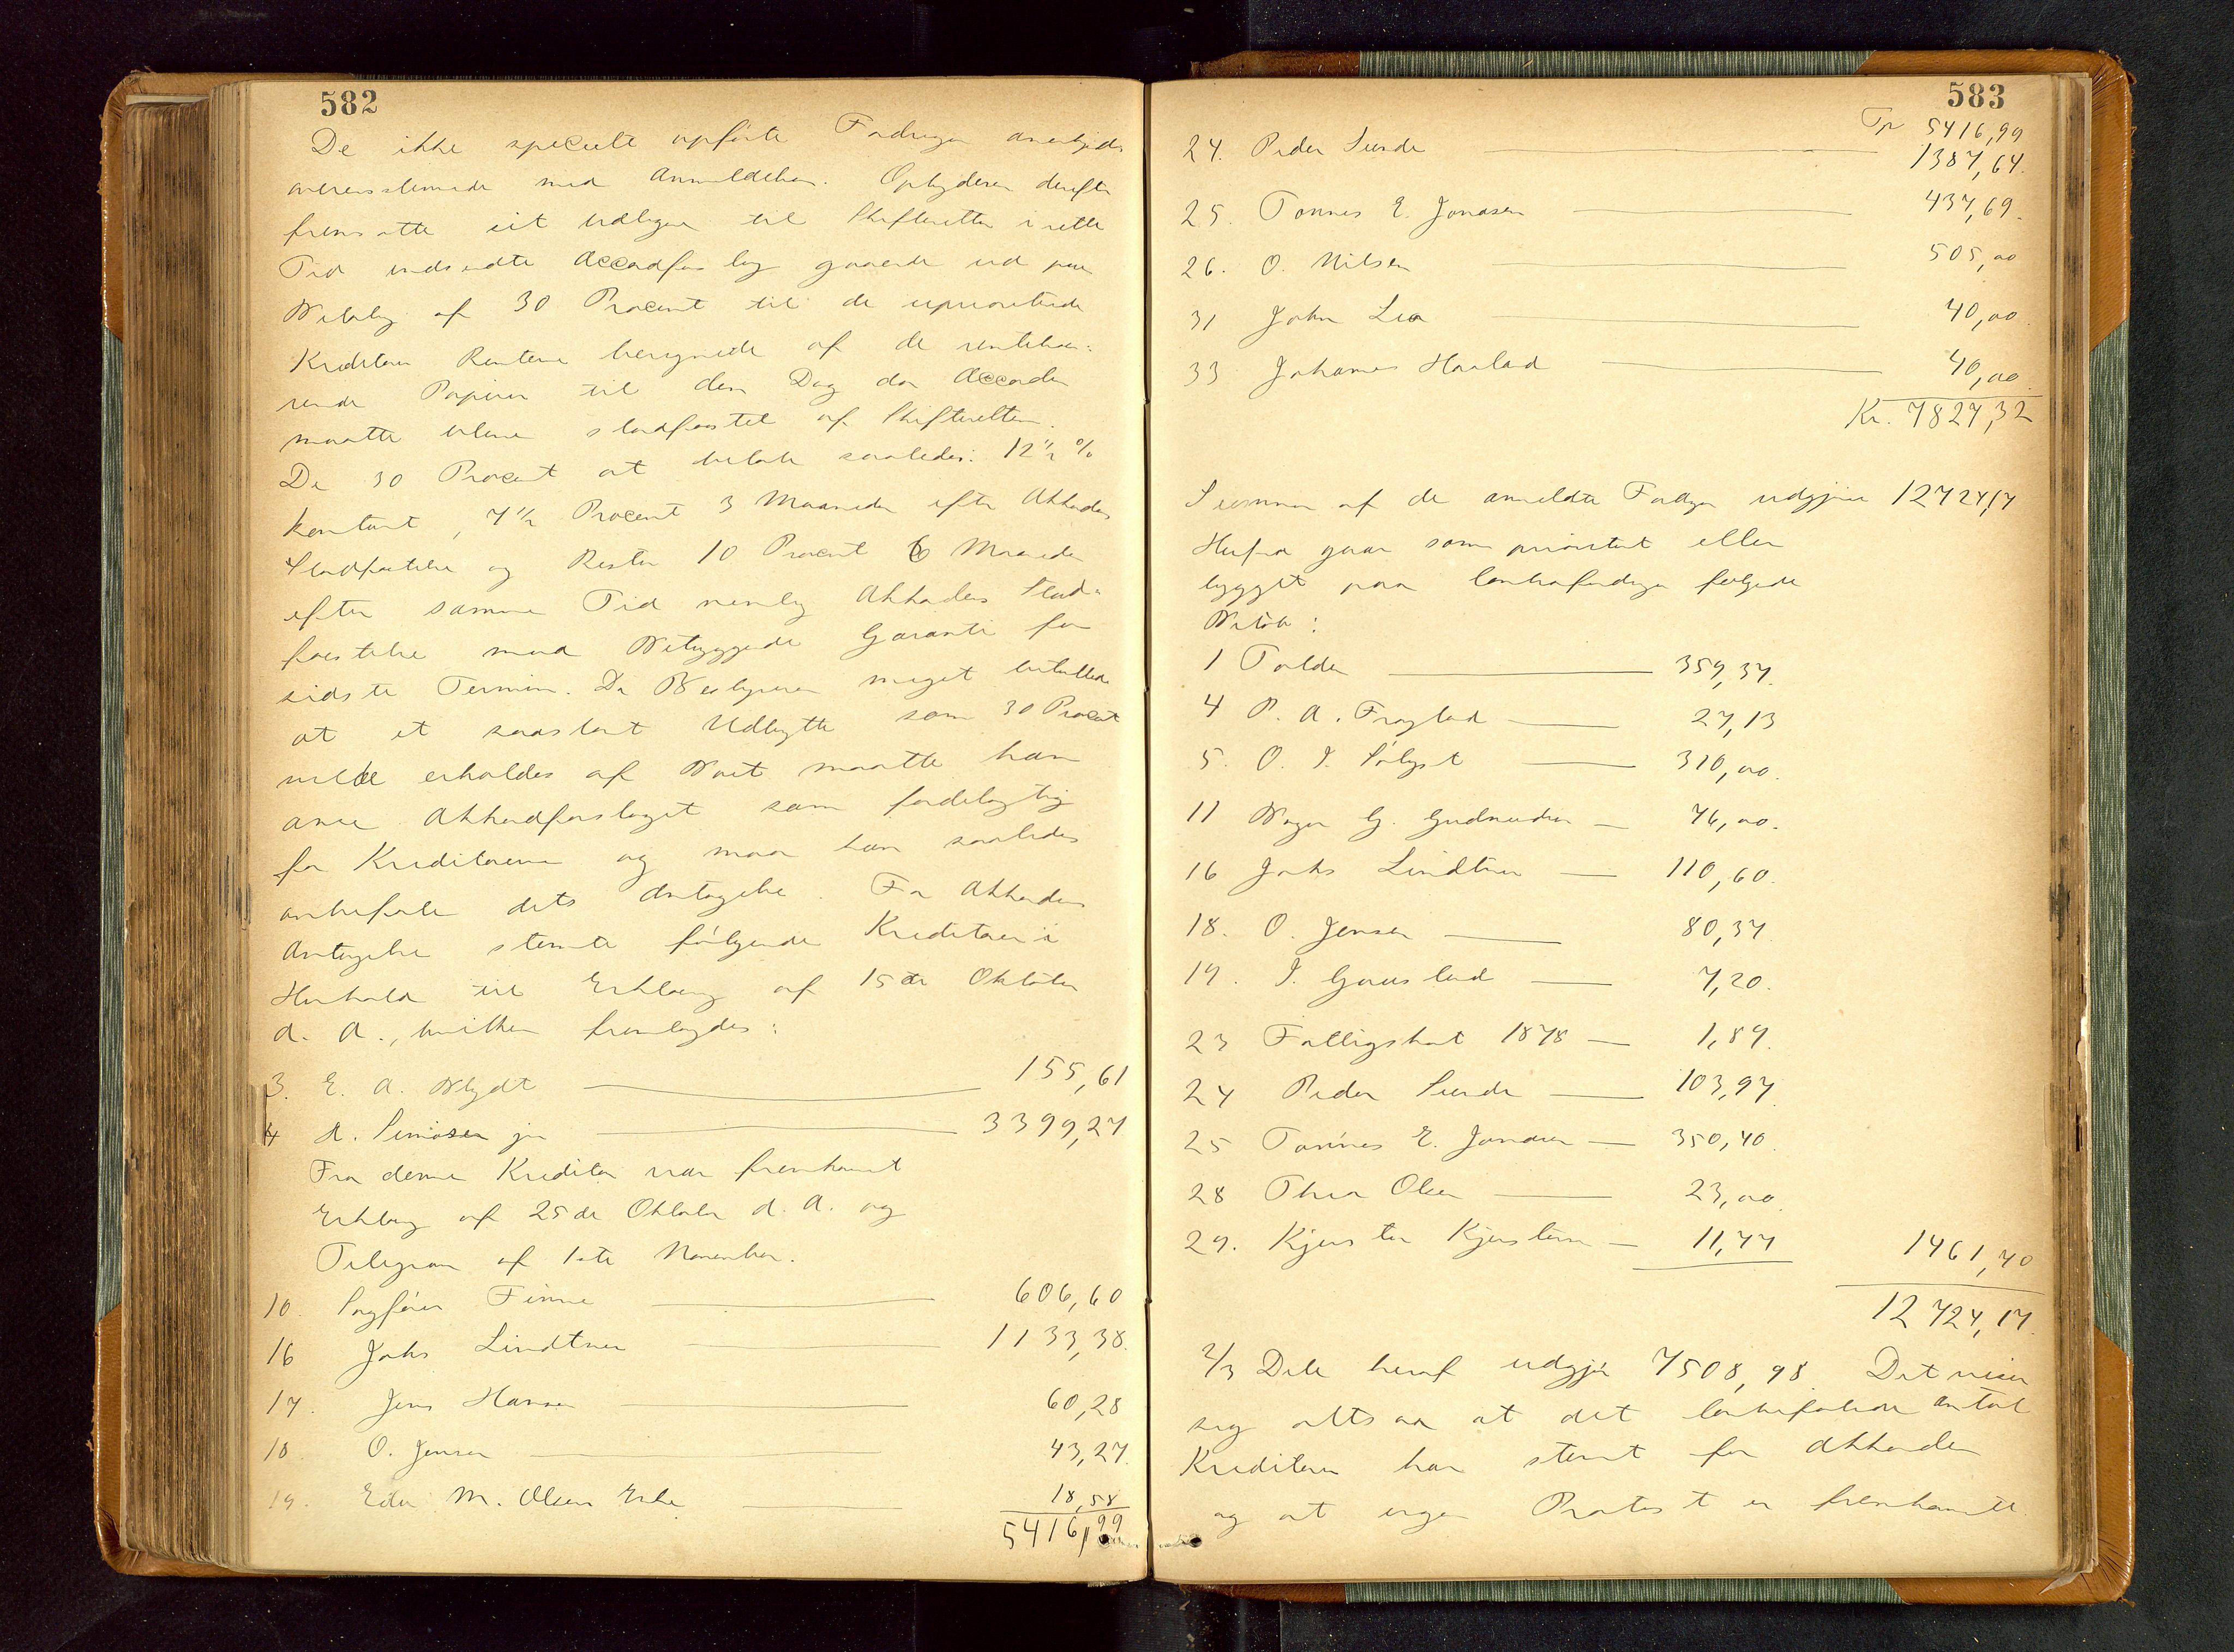 582
De ikke specielt opførte Fordringer anerkjendes
overensstemmende med Anmeldelsen. Opbyderen derefter
fremsatte et tidligere til Skifteretten i rette
Tid indsendte Accordforslag gaaende ud paa
Betaling af 30 Procent til de uprioriterede
Kreditorer Renterne beregnede af de rentebæ-
rende Papirer til den Dag da Accorden
maatte blive stadfæstet af Skifteretten.
De 30 Procent at betale saaledes: 12 1/2 %
kontant, 7 1/2 Procent 3 Maaneder efter Akkordens
Stadfæstelse og Resten 10 Procent 6 Maaneder
efter samme Tid nemlig Akkordens Stad-
fæstelse med Betryggende Garanti for
sidste Termin. Da Bestyreren meget betvilede
at et saastort Udbytte som 30 Procent
vilde erholdes af Boet maatte han
anse Akkordforslaget som fordelagtig
for Kreditorerne og maa han saaledes
anbefale dets Antagelse. For Akkordens
Antagelse stemte følgende Kreditorer i
Henhold til Erklæring af 15de Oktober
d. A., hvilken fremlagdes:
3. E. A. Blydt 155,61
4 A. Simonsen jr 3399,27
Fra denne Kreditor var fremkommet
Erklæring af 25de Oktober d. A. og
Telegram af 1ste November.
10. Sagfører Finne 606,60
16 Johs Lindtner 1133,38.
17. Jens Hansen 60,28
18 O. Jensen 43,27.
19. Eden M. Olsens Enke 18,58
5416,99
583
Tp 5416,99
24. Peder Sunde 1387,64.
25. Tønnes E. Jonasen 437,69.
26. O. Nilsen 505,00
31 John Lea 40,00.
33 Johannes Havlad 40,00.
Kr. 7827,32
Summen af de anmeldte Fordringer udgjør 12724,17
Herfra gaar som prioritert eller
bygget paa Contrafordringer følgende
Beløb:
1 Tolden 359,37.
4 P. A. Frøyland 27,13
5. O. J. Sølyst 310,00.
11 Roger G. Gudmundsen 76,00.
16 Johs Lindtner 110,60.
18. O. Jensen 80,37.
19. J. Gauslad 7,20.
23 Fattigskat 1878 1,89.
24 Peder Sunde 103,97.
25 Tønnes E. Jonasen 350,40.
28 Thea Olsen 23,00.
29. Kjersten Kjerstein 11,77 1461,70
12724,17.
2/3 Dele heraf udgjør 7508,98. Det viser
sig altsaa at det lovbefalede antal
Kreditorer har stemt for Akkorden
og at ingen Protest er fremkommet.